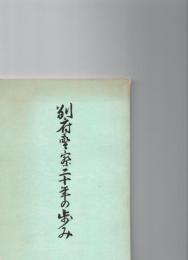 別府警察二十年の歩み